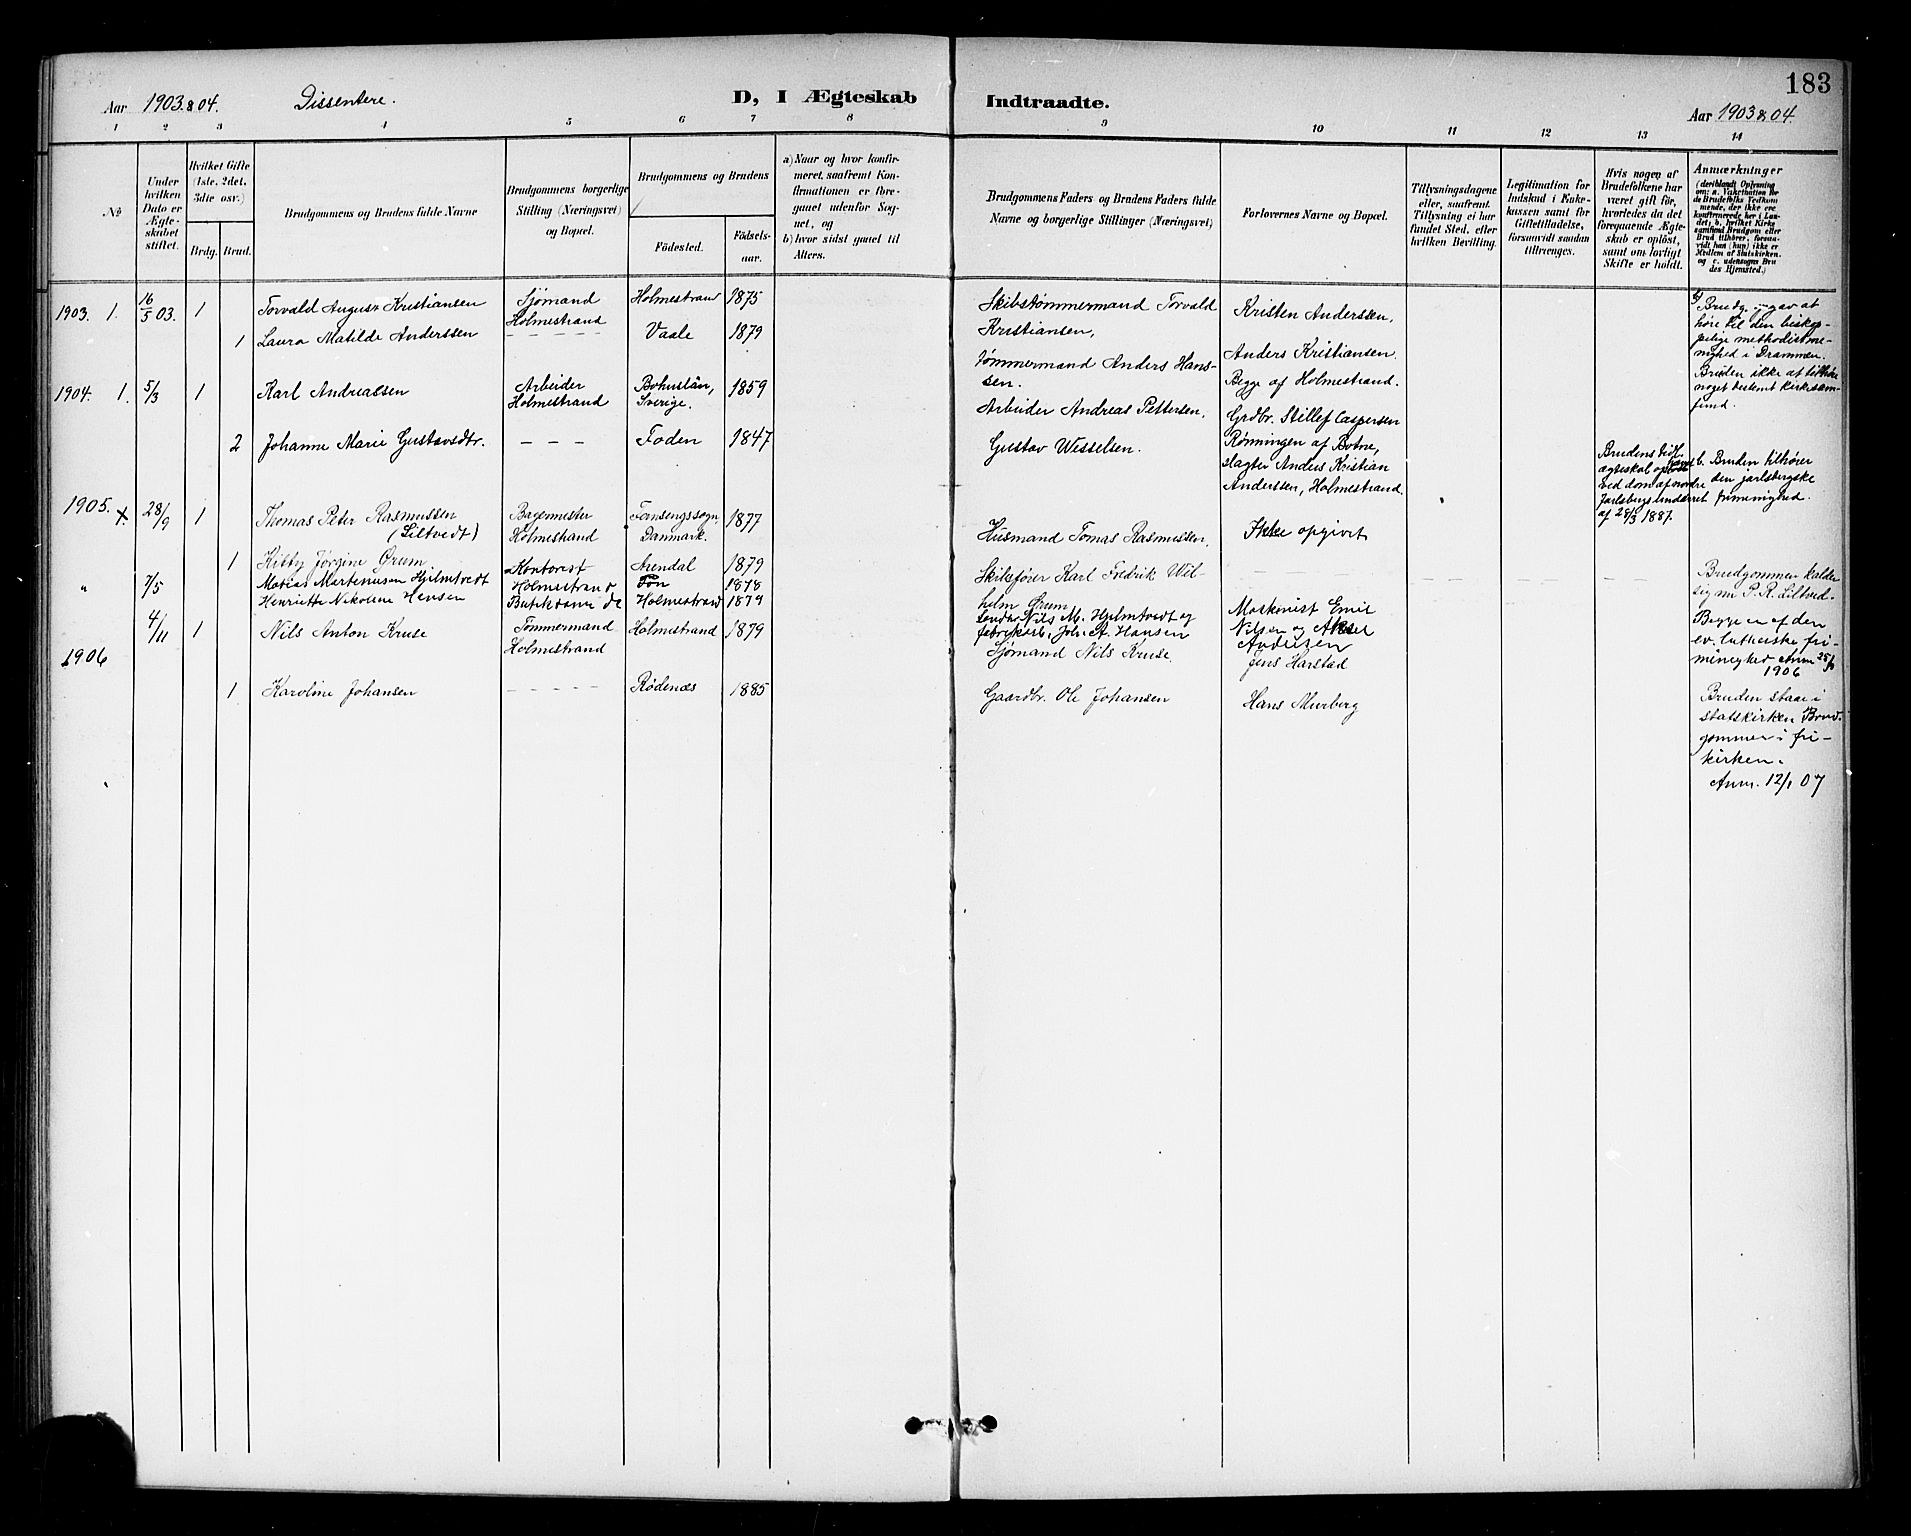 183
Aar 1903 & 04. Dissentere. D, I Ægteskab Indtraadte. Aar 1903 & 04.
1 2 3 4 5 6 7 8 9 10 11 12 13 14
No
Under hvilken Dato er Ægteskabet stiftet.
Hvilket Gifte (1ste, 2det, 3die osv.)
Brdg. Brud.
Brudgommens og Brudens fulde Navne
Brudgommens borgerlige Stilling (Næringsvei) og Bopæl.
Brudgommens og Brudens
Fødested. Fødselsaar.
a) Naar og hvor konfirmeret, saafremt Konfirmationen er foregaaet udenfor Sognet, og
b) hvor sidst gaaet til Alters.
Brudgommens Faders og Brudens Faders fulde Navne og borgerlige Stillinger (Næringsvei)
Forlovernes Navne og Bopæl.
Tillysningsdagene eller, saafremt Tillysning ei har fundet Sted, efter hvilken Bevilling.
Legitimation for Indskud i Enkekassen samt for Giftetilladelse, forsaavidt saadan tiltrænges.
Hvis nogen af Brudefolkene har været gift før, hvorledes da det foregaaende Ægteskab er opløst, samt om lovligt Skifte er holdt.
Anmærkninger
1903. 1. 16/5 03. 1 Torvald August Kristiansen Sjømand Holmestrand Holmestrand 1875
1 Laura Matilde Anderssen – – – – Vaale 1879
Skibstømmermand Torvald
Kristiansen,
Tømmermand Anders Hans-
sen.
Kristen Anderssen,
Anders Kristiansen.
Begge af Holmestrand.
Brudg. opgav at
høre til den biskop-
pelige methodistme-
nighed i Drammen.
Bruden ikke at tilhøre
noget bestemt kirkesam-
fund.
1904. 1. 5/3 1 Karl Andreassen Arbeider Holmestrand Bohuslän, Sverige. 1859
2 Johanne Marie Gustavsdtr. – – – Foden 1847
Arbeider Andreas Pettersen,
Gustav Wesselsen.
Grdbr. Stillef Caspersen
Rønningen af Botne,
slagter Anders Kristian
Anderssen, Holmestrand.
Brudens tidl.
ægteskab opløst
ved dom af nordre
Jarlsbergs underret
af 28/3 1887.
b. Bruden tilhører
den jarlsbergske
frimenighed.
1905. 28/9 1 Thomas Peter Rasmussen
(Liltvedt)
Bagermester Holmestrand Danmark. 1877
1 Kitty Jørgine Ørum Arendal 1879
Husmand Tomas Rasmussen,
Skibsfører Karl Fredrik Wil-
helm Ørum
Ikke opgivet
Brudgommen kalder
sig nu P. R. Liltved.
" 7/5 Matias Martenusen Hjelmtvedt Kontorist Holmestrand Fon 1878
Henriette Nikoline Hansen Holmestrand 1879
Nils M. Hjelmtvedt og
fabrikarb. Joh. A. Hansen
Maskinist Emil
Nilsen og Aksel
Andersen
Begge er af den
ev. lutherske fri-
menighed Anm 25/ 1906
1906 4/11 1 Nils Anton Kruse Tømmermand Holmestrand Holmestrand 1879
1 Karoline Johansen – – – – – Rødenæs 1885
Sjømand Nils Kruse.
Gaardbr. Ole Johansen
Jens Harstad
Hans Murberg
Bruden staar i
statskirken Brud-
gommen i fri-
kirken.
Anm. 12/1 07